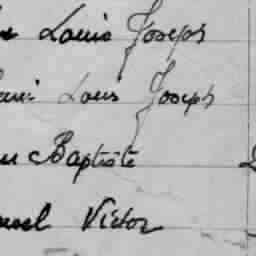 Louis Joseph
Louis Joseph
Baptiste
Victor